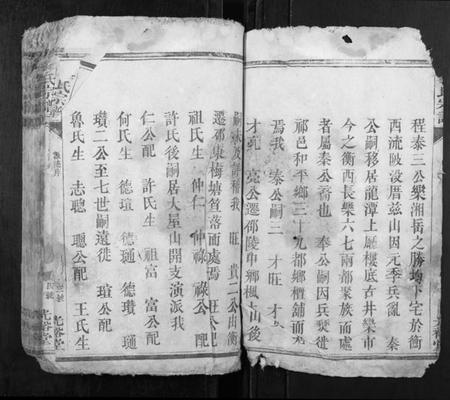 程泰三公樂湘岳之勝境下宅於衡
西流陂没厝兹山因元季兵亂 泰
公嗣移居龍潭上廳樓底古井欒市
今之衡西長樂六七兩都某族而處
者屬泰公裔也 奉公嗣因兵燹徙
祁邑和平鄉三十九都鄉檀舖而
焉我 泰公嗣二 才旺 才
才亮 亮公遷邵陵中鄉楓山後
嗣 我 旺 貴二公由衡
遷邵東梅塘筫落而處焉 旺公配
祖氏生 仲仁 仲祿 祿公
許氏後嗣居大屋山開支演派我
仁公配 許氏生 祖富 富公配
何氏生 德瓊 德璉 德瓚 璉
瓚二公至七世嗣遠徙 瑄公配
魯氏生 志聰 聰公配 王氏生
光裕堂